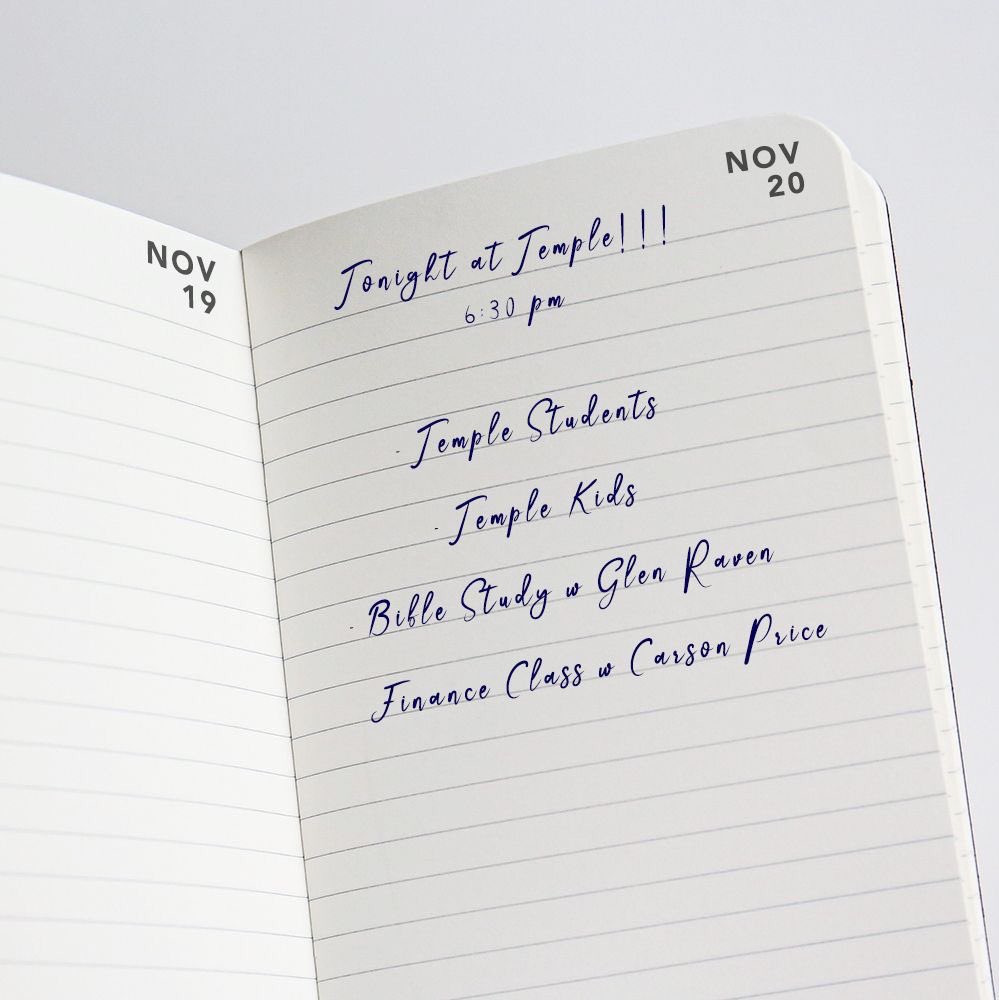 NOV
19
NOV
20
Tonight at Temple!!!
6:30 pm
- Temple Students
- Temple Kids
- Bible Study w Glen Raven
Finance Class w Carson Price